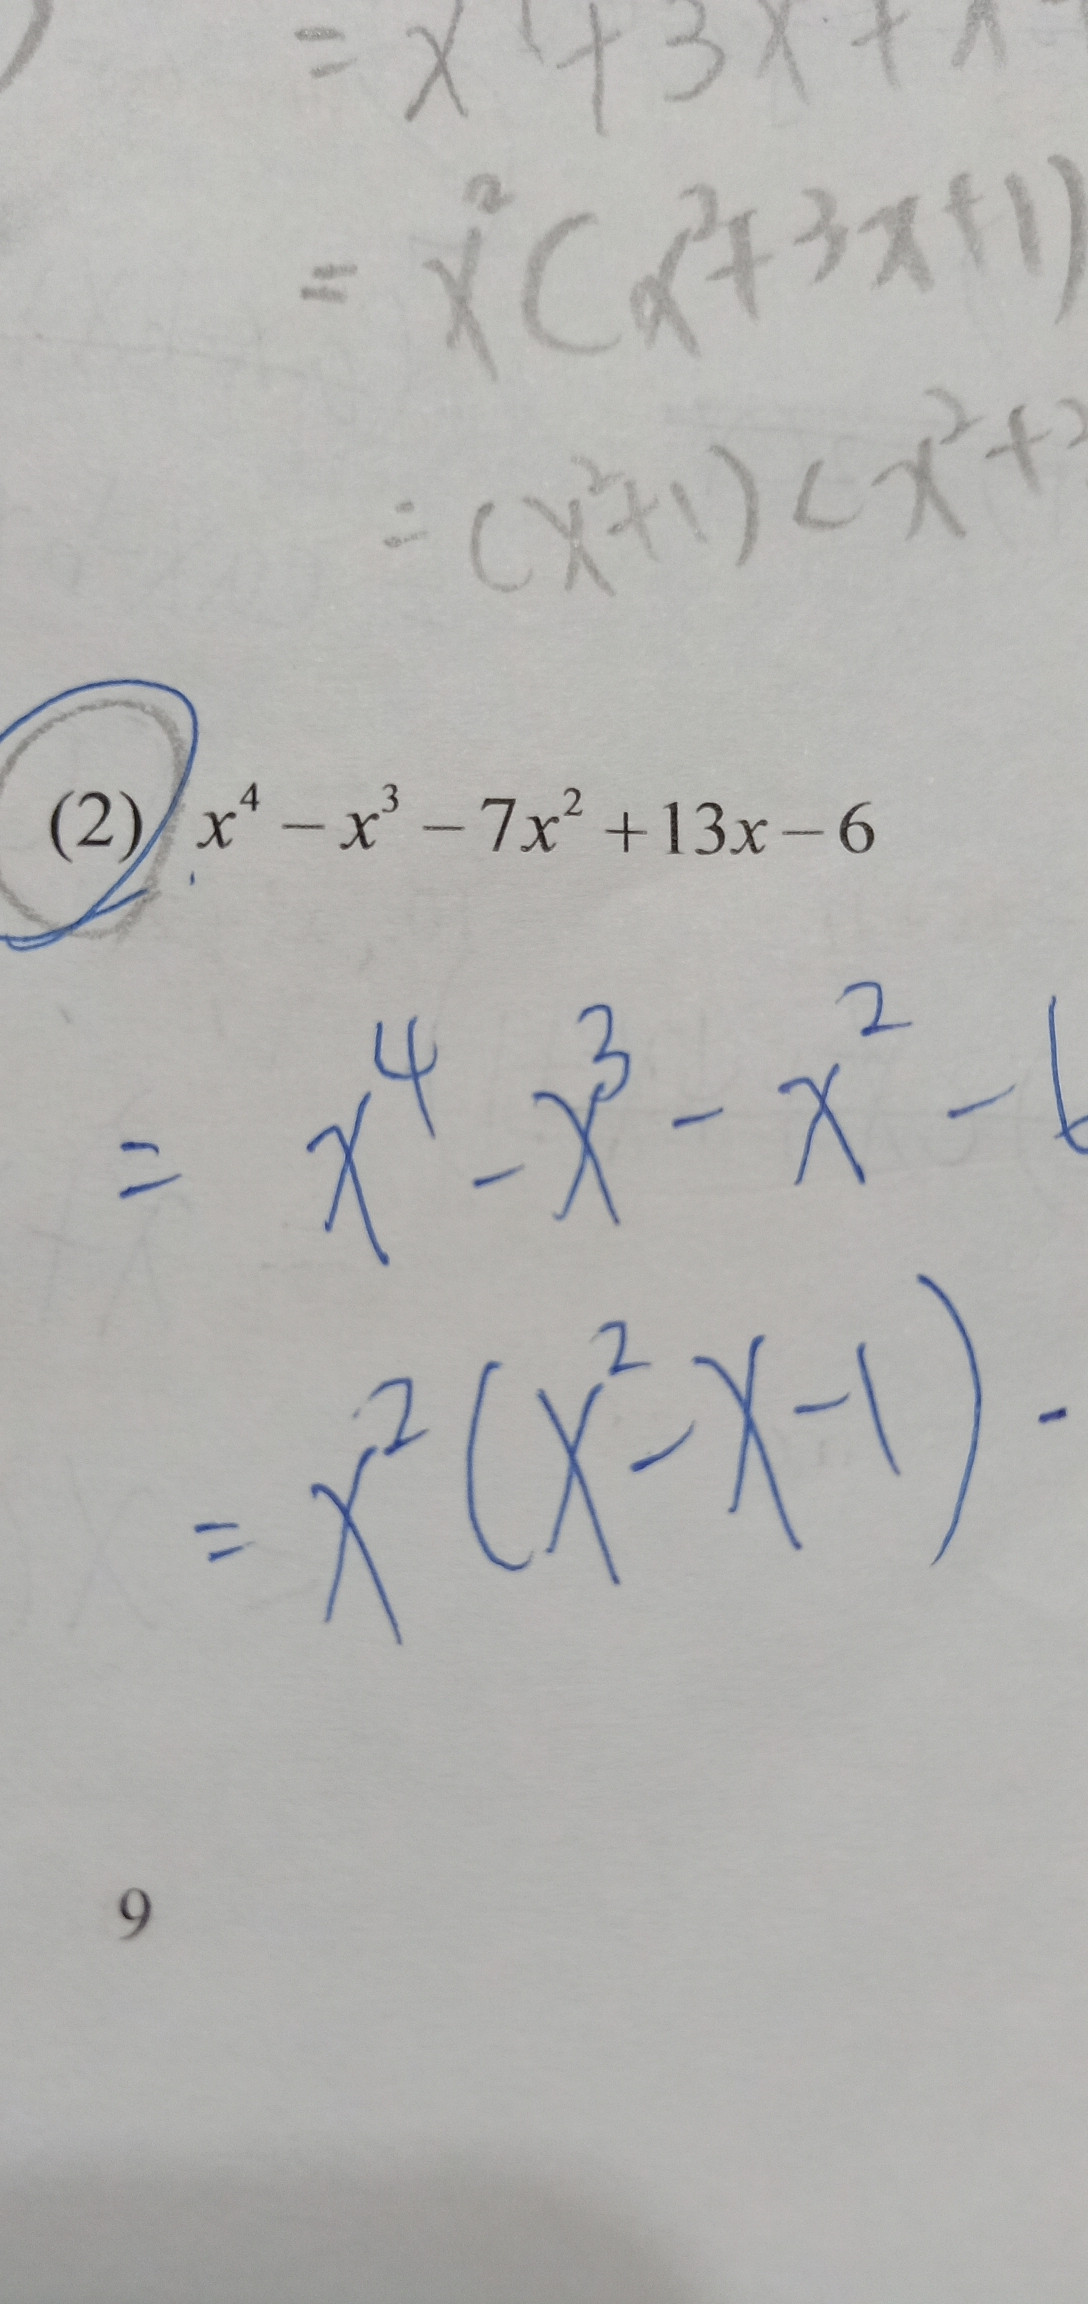 = x + 3x + x
= x²(x²+3x+1)
= (x²+1)(x²+
(2) x⁴ − x³ − 7x² + 13x − 6
= x⁴ - x³ - x² - 6
= x²(x²-x-1) -
9